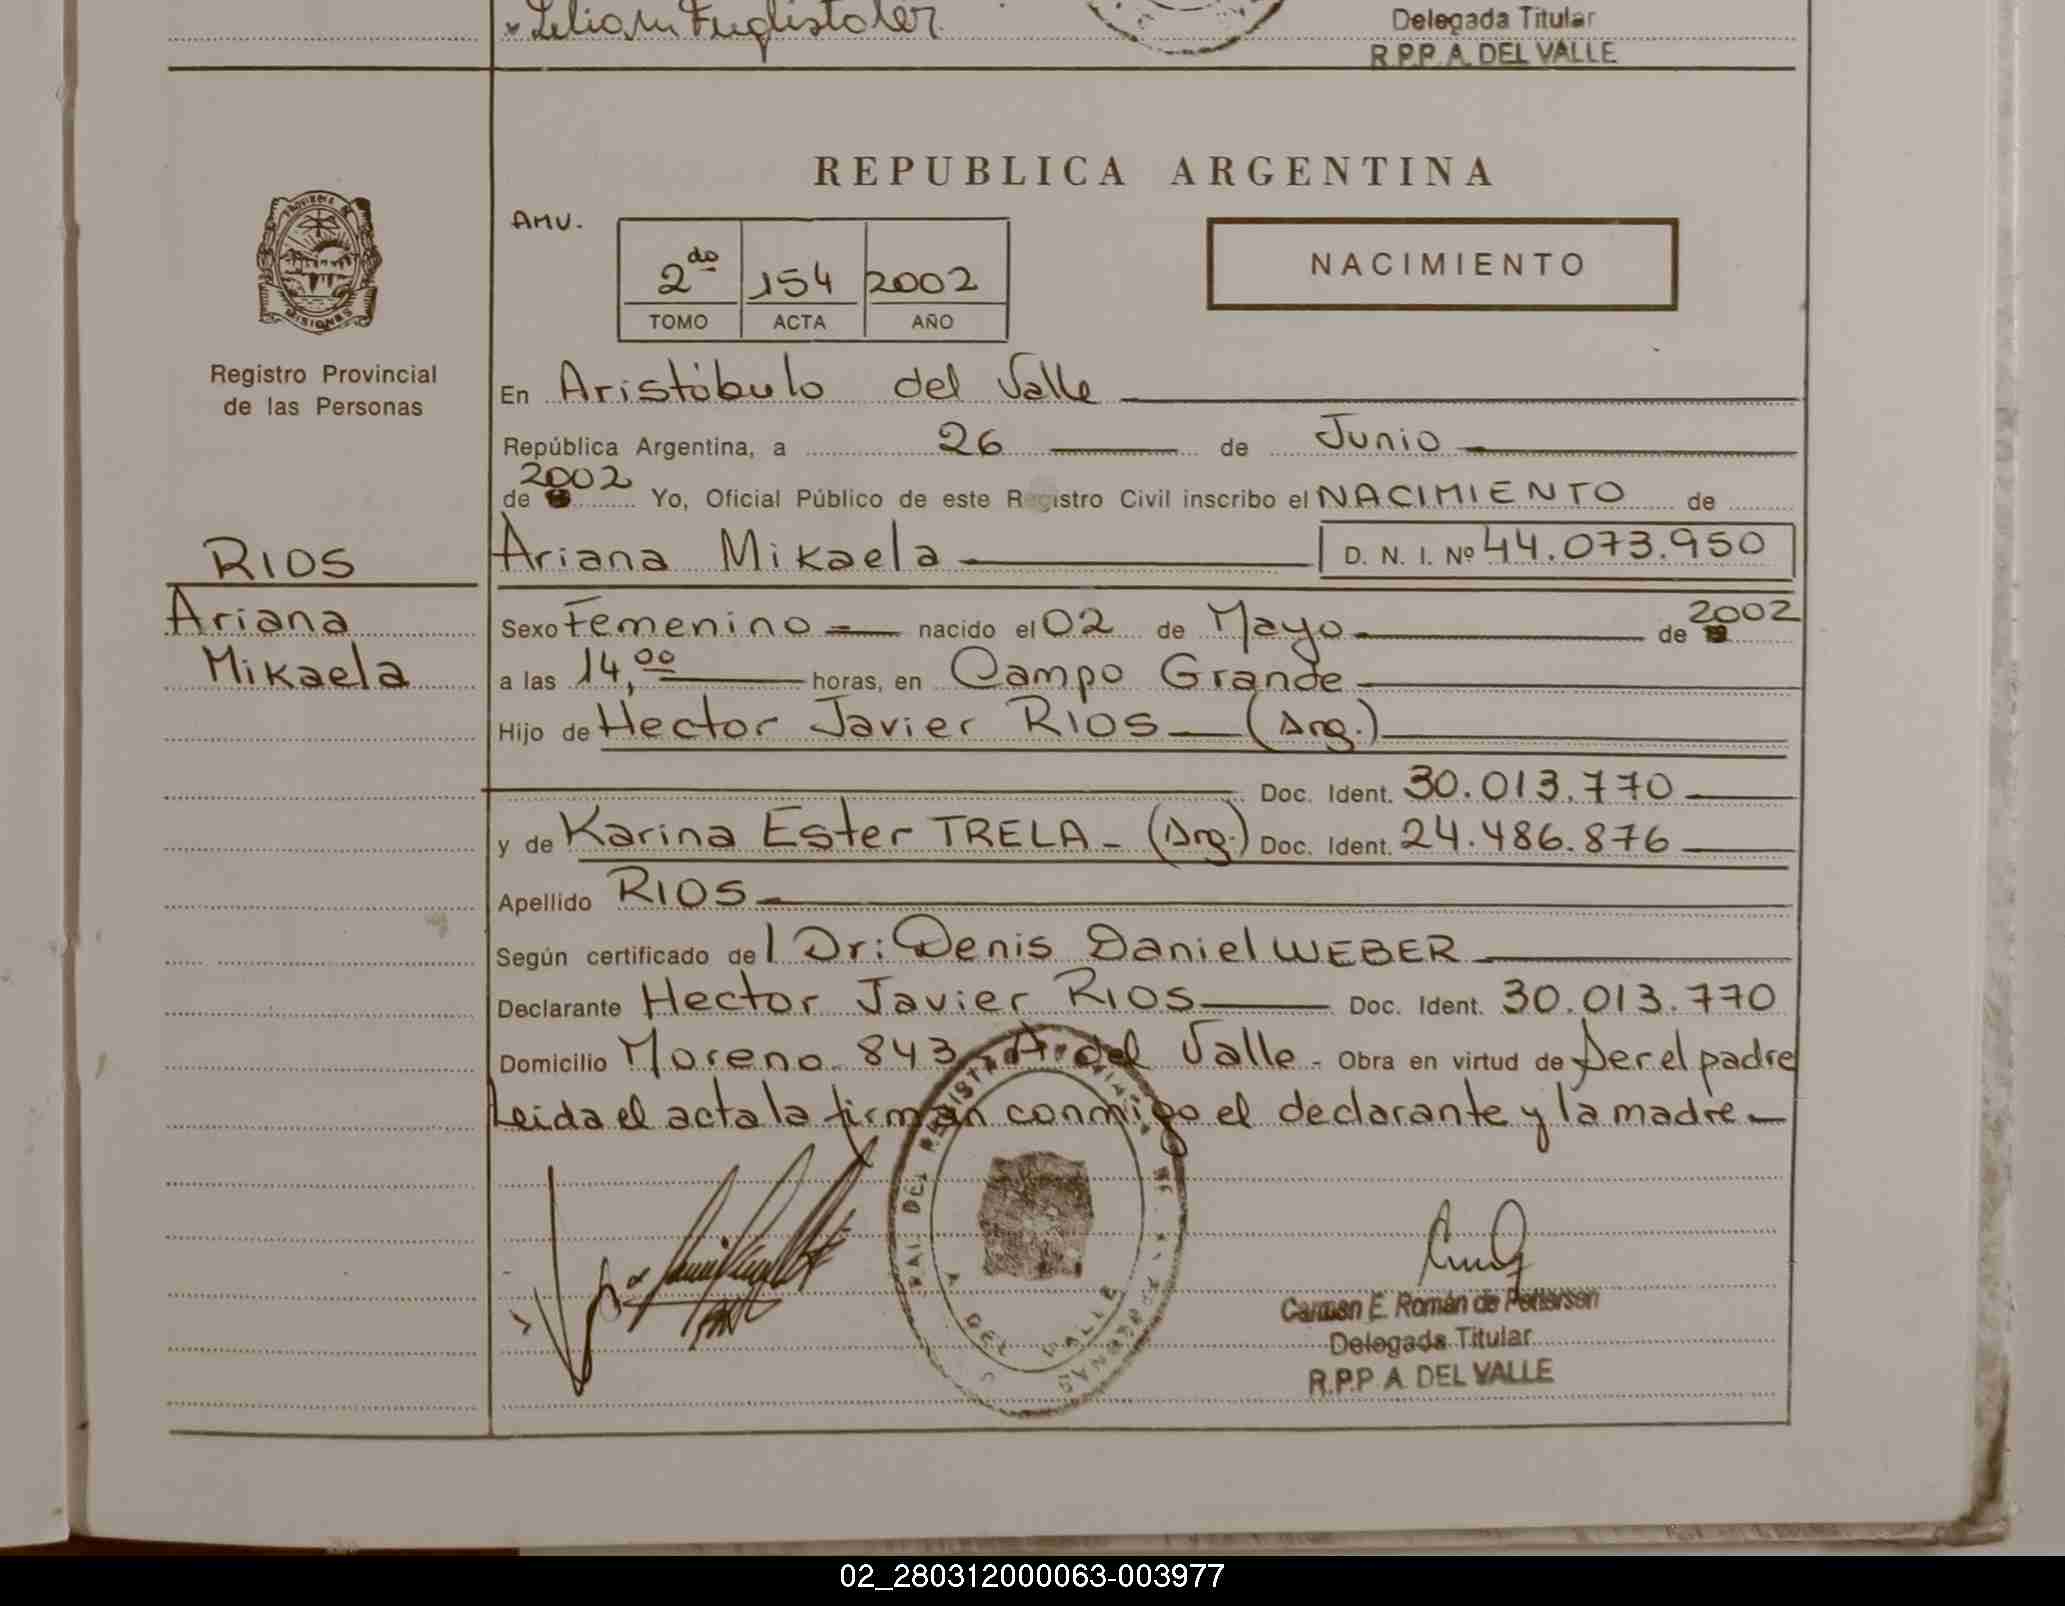 Delegada Titular
R.P.P. A. DEL VALLE
REPUBLICA ARGENTINA
AMV.
2do 154 2002
TOMO ACTA AÑO
NACIMIENTO
PROVINCIA DE
MISIONES
Registro Provincial
de las Personas
RIOS
Ariana
Mikaela
En Aristóbulo del Valle
República Argentina, a 26 de Junio
2002
de Yo, Oficial Público de este Registro Civil inscribo el NACIMIENTO de
Ariana Mikaela D. N. I. Nº 44.073.950
Sexo Femenino nacido el 02 de Mayo de 2002
a las 14,00 horas, en Campo Grande
Hijo de Hector Javier RIOS (Arg.)
Doc. Ident. 30.013.770
y de Karina Ester TRELA - (Arg.) Doc. Ident. 24.486.876
Apellido RIOS
Según certificado de l Dr: Denis Daniel WEBER
Declarante Hector Javier RIOS Doc. Ident. 30.013.770
Domicilio Moreno 843 A. del Valle - Obra en virtud de Ser el padre
Leida el acta la firman conmigo el declarante y la madre
A. DEL VALLE
Carmen E. Román de
Delegada Titular
R.P.P A. DEL VALLE
02_280312000063-003977